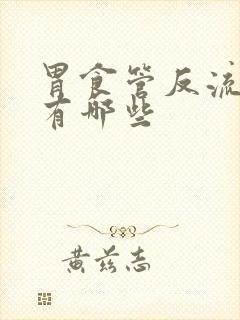 胃食管反流
有哪些
黄兹志